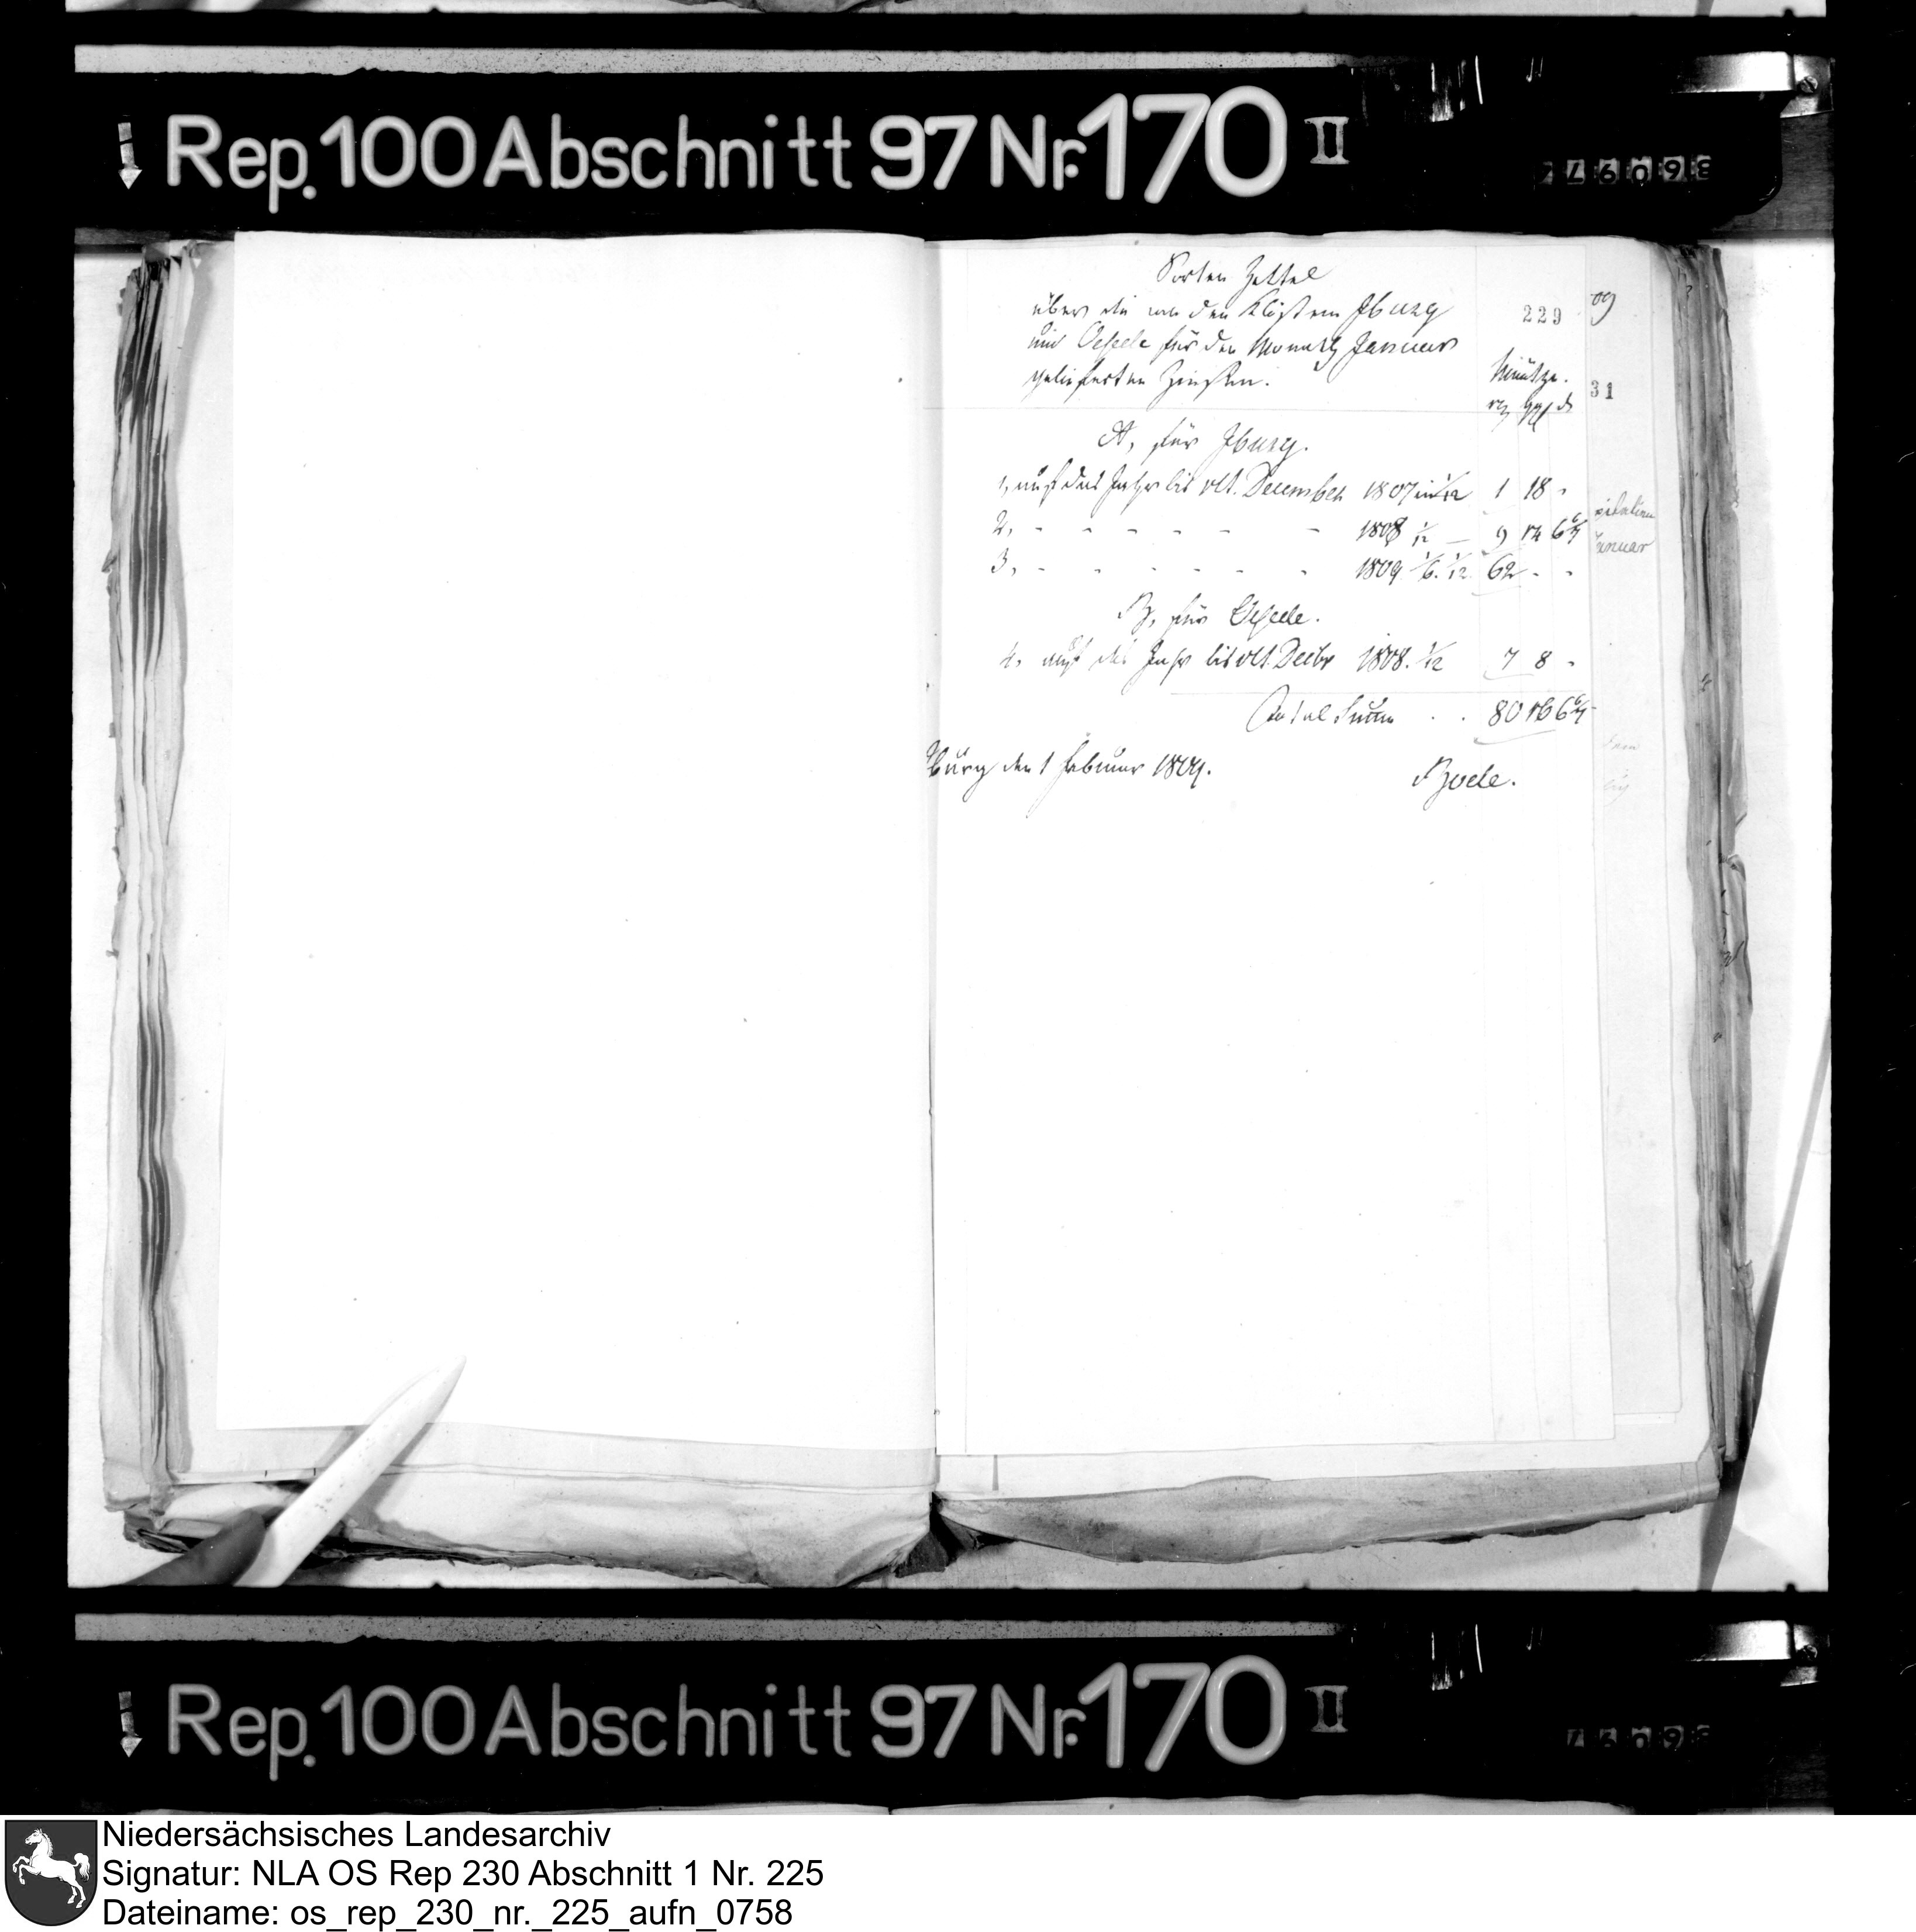 Rep. 100 Abschnitt 97 Nr. 170 II
Sorten Zettel
über die von den Klöstern Iburg
und Oesede für den Monath Januar
gelieferten Zinsen.
229
31
Münze.
rt ggr d
A, für Iburg.
1, auf das Jahr bis ult. December 1807 in 1/12 1 18 -
2, - - - - - - 1808 1/12 — 9 14 6 6/7
3, - - - - - - 1809 1/6. 1/12 62 - -
Januar
B, für Oesede.
4, auf das Jahr bis ult. Decbr 1808. 1/12 7 8 -
Total Summe . . 80 16 6 6/7
Iburg den 1 Februar 1809.
Bode.
Rep. 100 Abschnitt 97 Nr. 170 II
Niedersächsisches Landesarchiv
Signatur: NLA OS Rep 230 Abschnitt 1 Nr. 225
Dateiname: os_rep_230_nr._225_aufn_0758